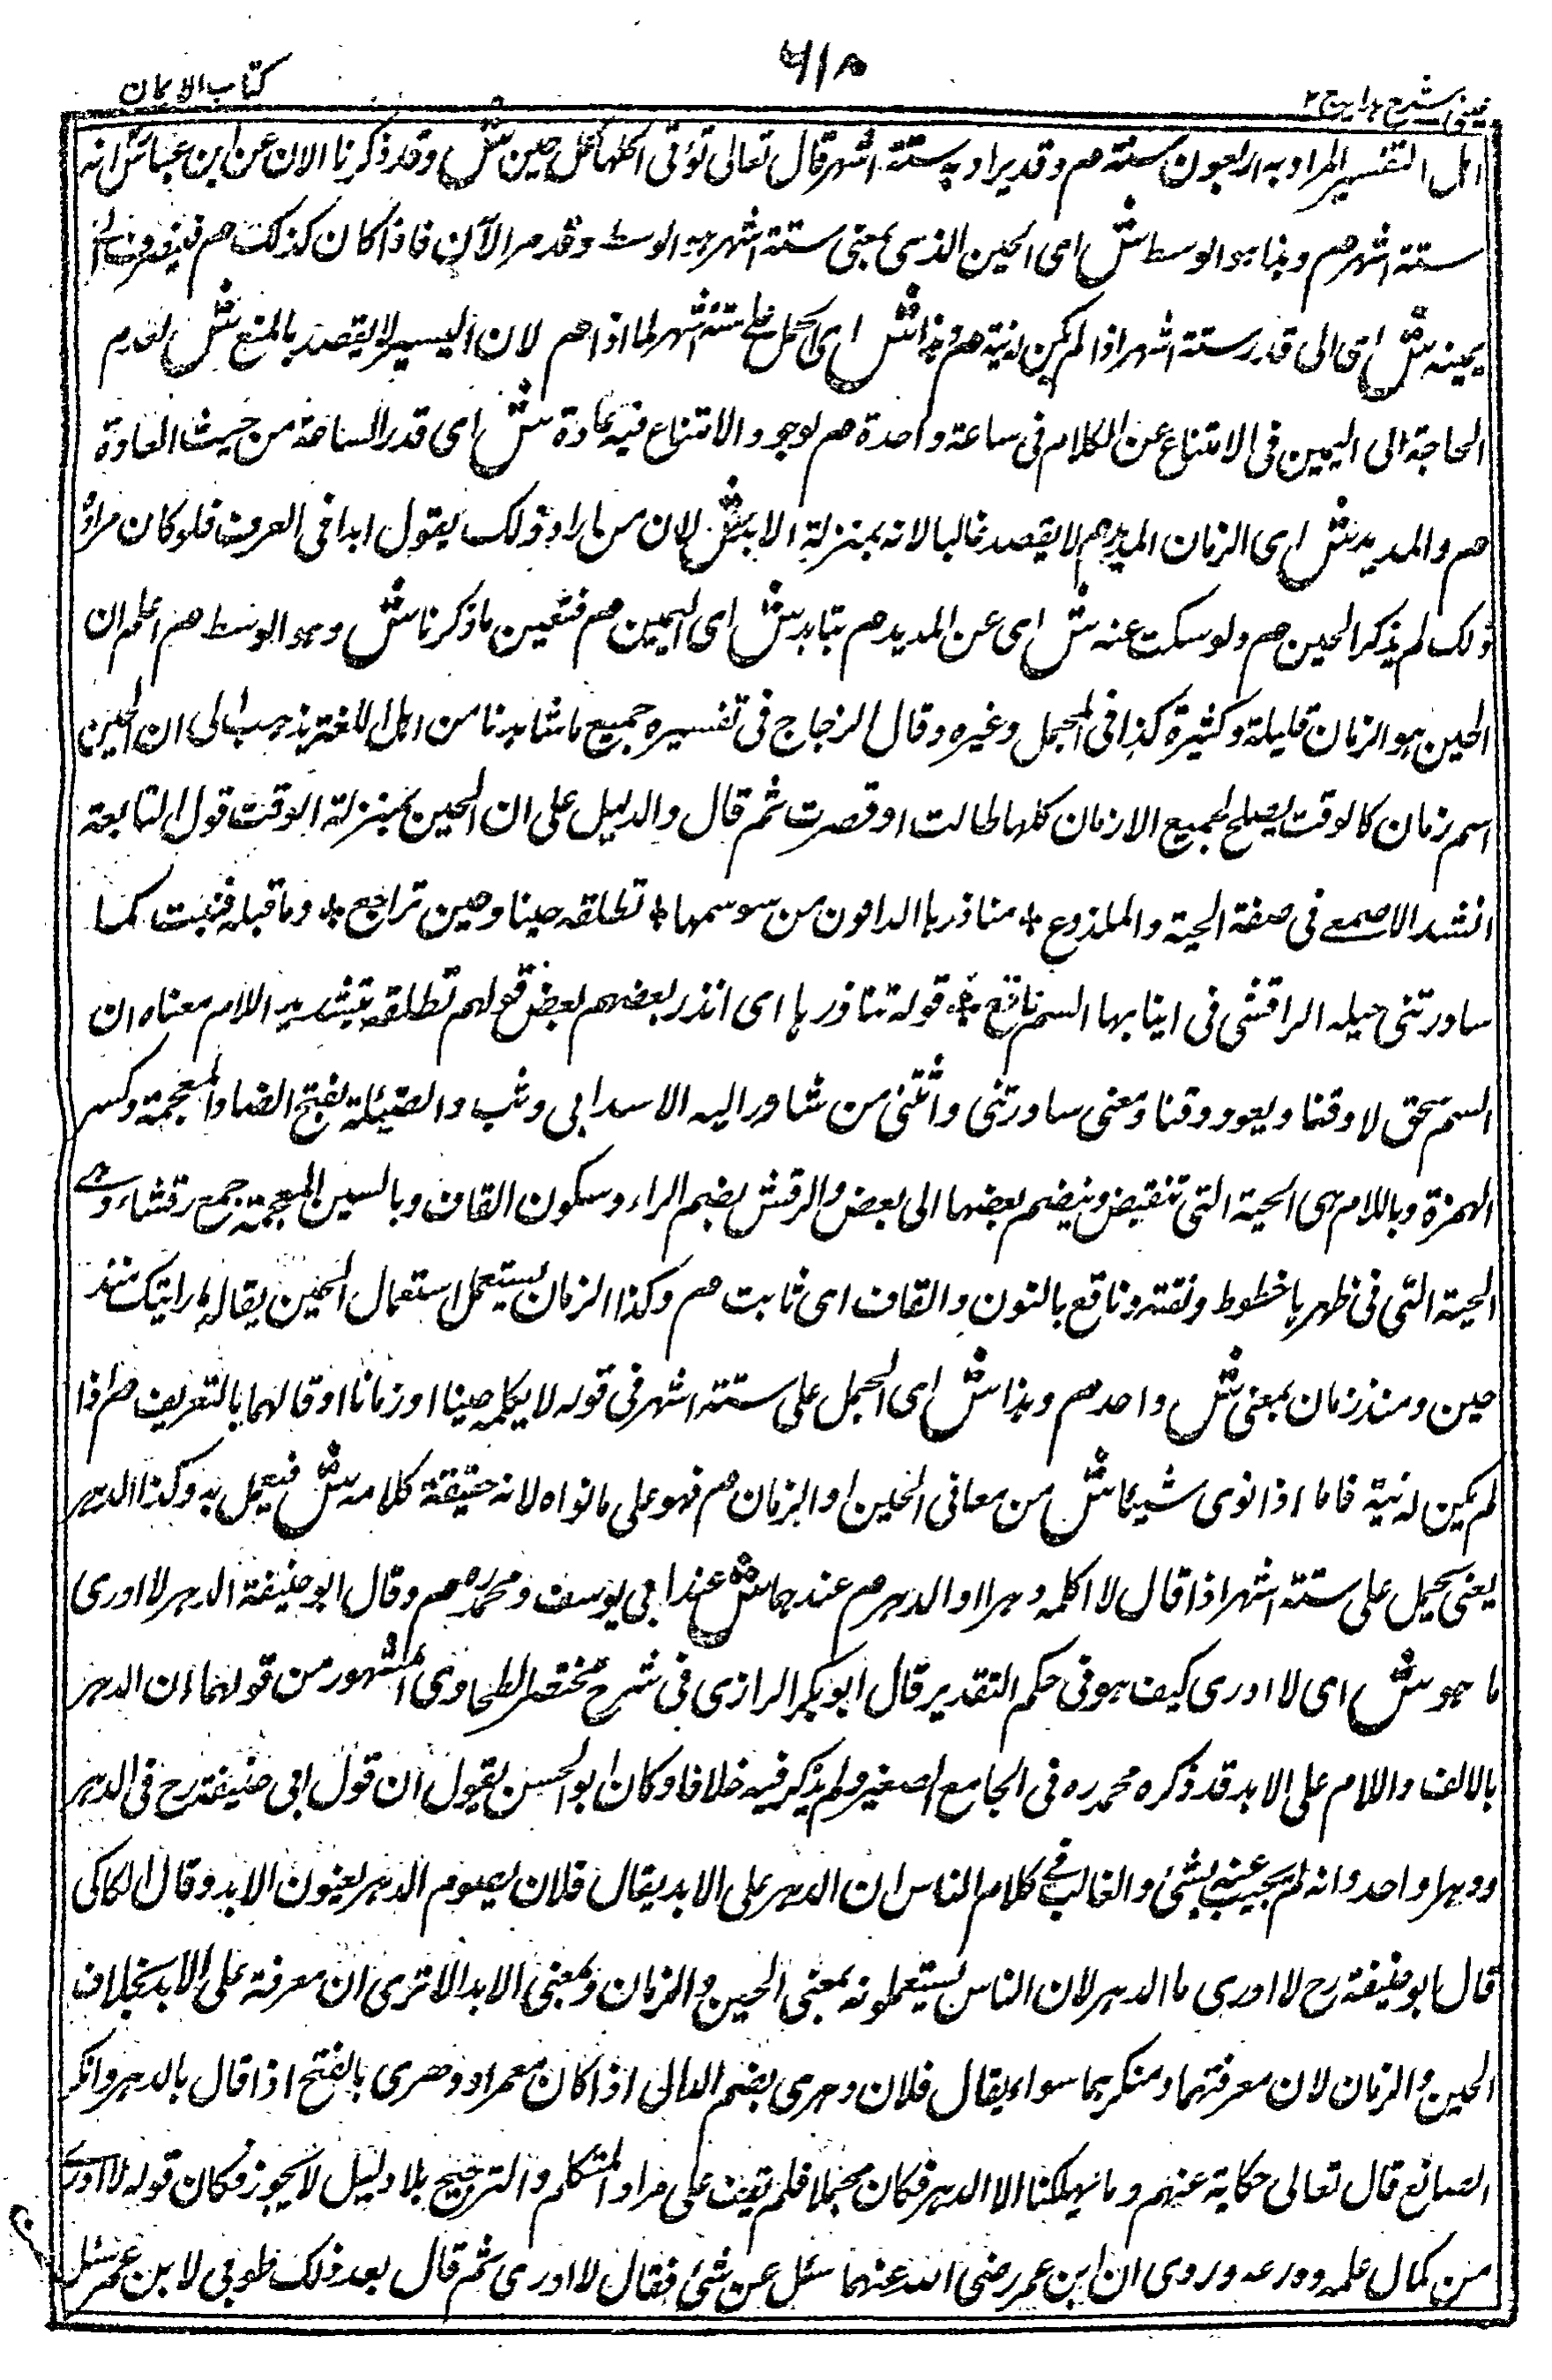 کتاب الایمان
۶۱۸
عینی شرح ہدایہ ج ۲
اہل التفسیر المراد بہ اربعون سنۃ ھم وقد یراد بہ ستۃ اشہر قال تعالی تؤتی اکلہا کل حین ش وقد ذکرنا الان عن ابن عباس انہ
ستۃ اشہر ھم وہذا ہو الوسط ش ای الحین الذی بمعنی ستۃ اشہر ہو الوسط وقد مر الآن فاذا کان کذلک ھم فینصرف
یمینہ ش ای الی قدر ستۃ اشہر اذا لم یکن لہ نیۃ ھم وہذا ش ای الحمل علی ستۃ اشہر لما اذا ھم لان الیسیر لا یقصد بالمنع ش لعدم
الحاجۃ الی الیمین فی الامتناع عن الکلام فی ساعۃ واحدۃ ھم لوجود الامتناع فیہ عادۃ ش ای قدر الساعۃ من حیث العادۃ
ھم والمدید ش ای الزمان المدید ھم لا یقصد غالبا لانہ بمنزلۃ الابد ش لان من اراد ذلک یقول ابدا فی العرف فلو کان مرادہ
ذلک لم یذکر الحین ھم ولو سکت عنہ ش ای عن المدید ھم یتابد ش ای الیمین ھم فتعین ما ذکرنا ش وہو الوسط ھم اعلم ان
الحین ہو الزمان قلیلۃ وکثیرۃ کذا فی المجمل وغیرہ وقال الزجاج فی تفسیرہ جمیع ما شاہدنا من اہل اللغۃ یذہب الی ان الحین
اسم زمان کالوقت یصلح لجمیع الازمان کلہا طالت او قصرت ثم قال والدلیل علی ان الحین بمنزلۃ الوقت قول التابعۃ
انشد الاصمعے فی صفۃ الحیۃ والملذوع * مناذرہا الداعون من سوسمہا * تطلقہ حینا وحین تراجع * وما قبلہ فنبت کما
ساورتنی حیلہ الراقشی فی اینابہا السم ناقع * قولہ تناذرہا ای انذر بعضہم بعض قولہم تطلقہ بتشدید اللام معناہ ان
السم یحق لا وقتا ویعود وقتا ومعنی ساورتنی واثتنی من شاور الیہ الاسد ای وثب والضئیلۃ بفتح الضاد المعجمۃ وکسر
الہمزۃ وباللام ہی الحیۃ التی تنقیض وینضم بعضہا الی بعض والرقش بضم الراء وسکون القاف وبالسین المعجمۃ جمع رقشاء وہے
الحیۃ التی فی ظہرہا خطوط ونقتہ وناقع بالنون والقاف ای ثابت ھم وکذا الزمان یستعمل استعمال الحین یقال ما رایتک منذ
حین ومنذ زمان بمعنی ش واحد ھم وہذا ش ای الحمل علی ستۃ اشہر فی قولہ لا یکلمہ حینا او زمانا او قالہما بالتعریف ھم اذا
لم یکن لہ نیۃ فاما اذا نوی شیئا ش من معانی الحین او الزمان ھم فہو علی ما نواہ لانہ حقیقۃ کلامہ ش فیعمل بہ وکذا الدہر
یعنی یحمل علی ستۃ اشہر اذا قال لا اکلمہ دہرا او الدہر ھم عندہما ش عند ابی یوسف ومحمد رہ ھم وقال ابو حنیفۃ الدہر لا ادری
ما ہو ش ای لا ادری کیف ہو فی حکم التقدیر قال ابو بکر الرازی فی شرح مختصر الطحاوی المشہور من قولہما ان الدہر
بالالف واللام علی الابد قد ذکرہ محمد رہ فی الجامع الصغیر ولم یذکر فیہ خلافا وکان ابو الحسن یقول ان قول ابی حنیفۃ رح فی الدہر
ودہرا واحد وانہ لم یجیب عنہ بشئ والغالب فے کلام الناس ان الدہر علی الابد یقال فلان یصوم الدہر یعنون الابد وقال الکاکی
قال ابو حنیفۃ رح لا ادری ما الدہر لان الناس یستعملونہ بمعنی الحین والزمان وبمعنی الابد الا تری ان معرفۃ علی الابد بخلاف
الحین والزمان لان معرفتہما ومنکرہما سواء یقال فلان دہری بضم الدال اذا کان معمرا ودھری بالفتح اذا قال بالدہر وانکر
الصانع قال تعالی حکایۃ عنہم وما یہلکنا الا الدہر فکان مجملا فلم تقف علی مراد المتکلم والترجیح بلا دلیل لا یجوز وکان قولہ لا ادرے
من کمال علمہ وورعہ وروی ان ابن عمر رضی اللہ عنہما سئل عن شئ فقال لا ادری ثم قال بعد ذلک طوبی لابن عمر سئل